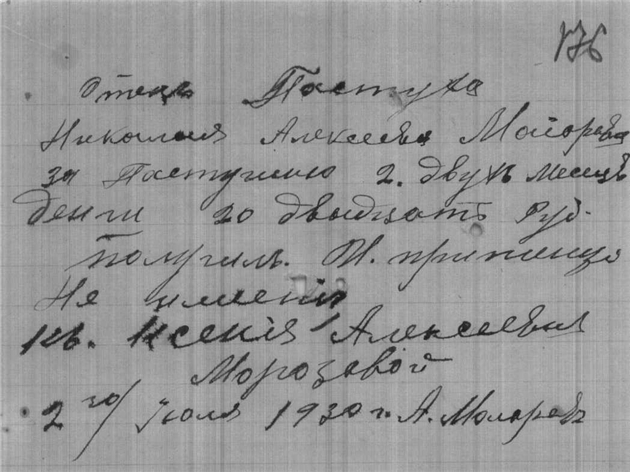 176
Отецъ Пастуха
Николая Алексеева Маiорова
за Пастушню 2. двухъ месецъ
денги 20 двыдцать руб.
получилъ. И. притензю
Не имеит
къ. Ксения Алексеевья
Морозовой
2го/ Июля 1930 г. А. Маiоровъ